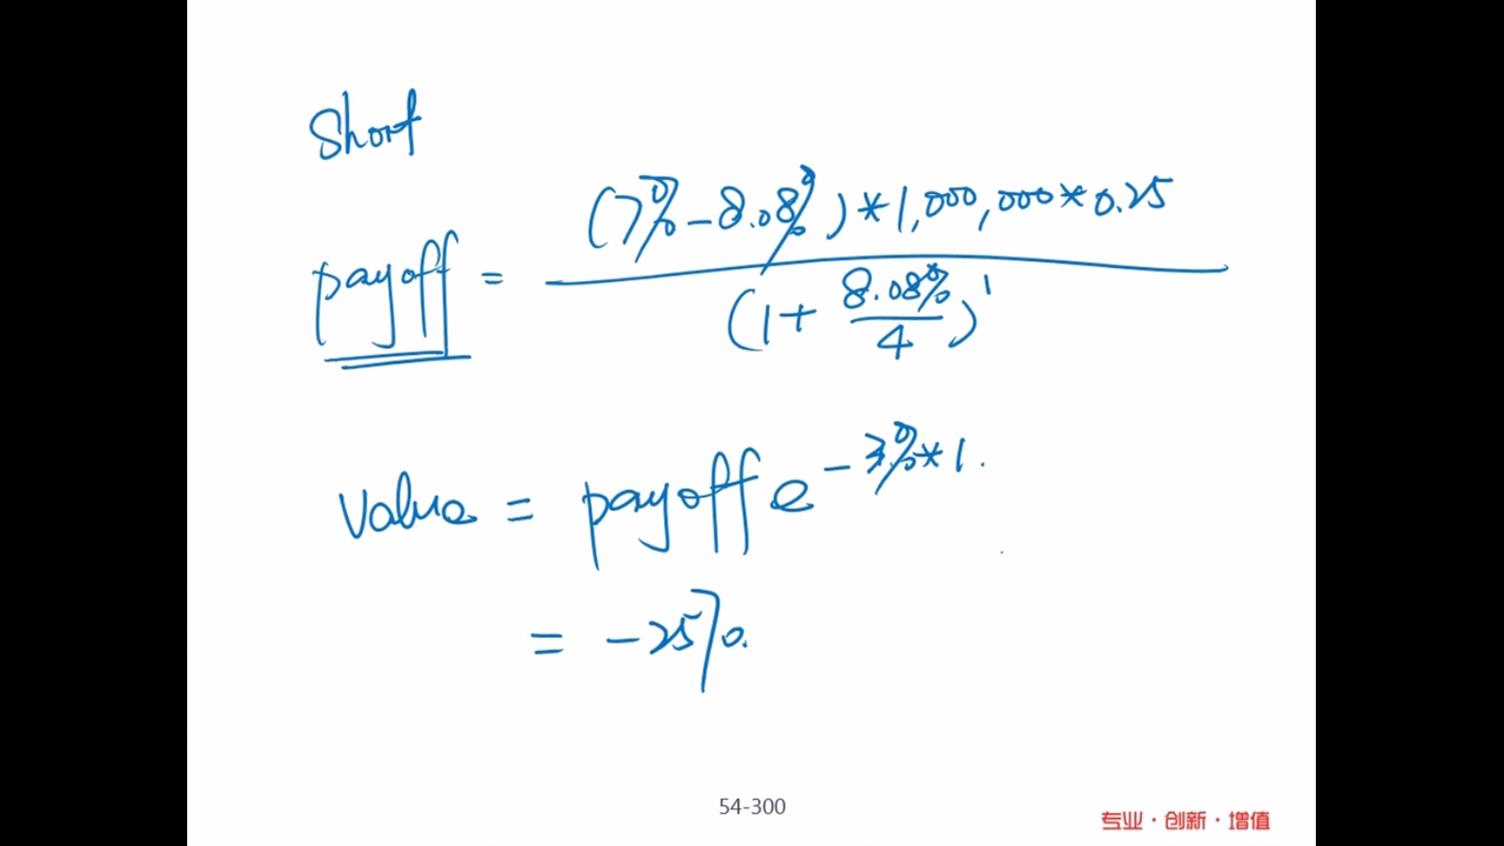 Short
payoff = (7% - 8.08%) * 1,000,000 * 0.25
(1 + 8.08%/4)^1
Value = payoff e^-3%*1.
= -2570.
54-300
专业·创新·增值